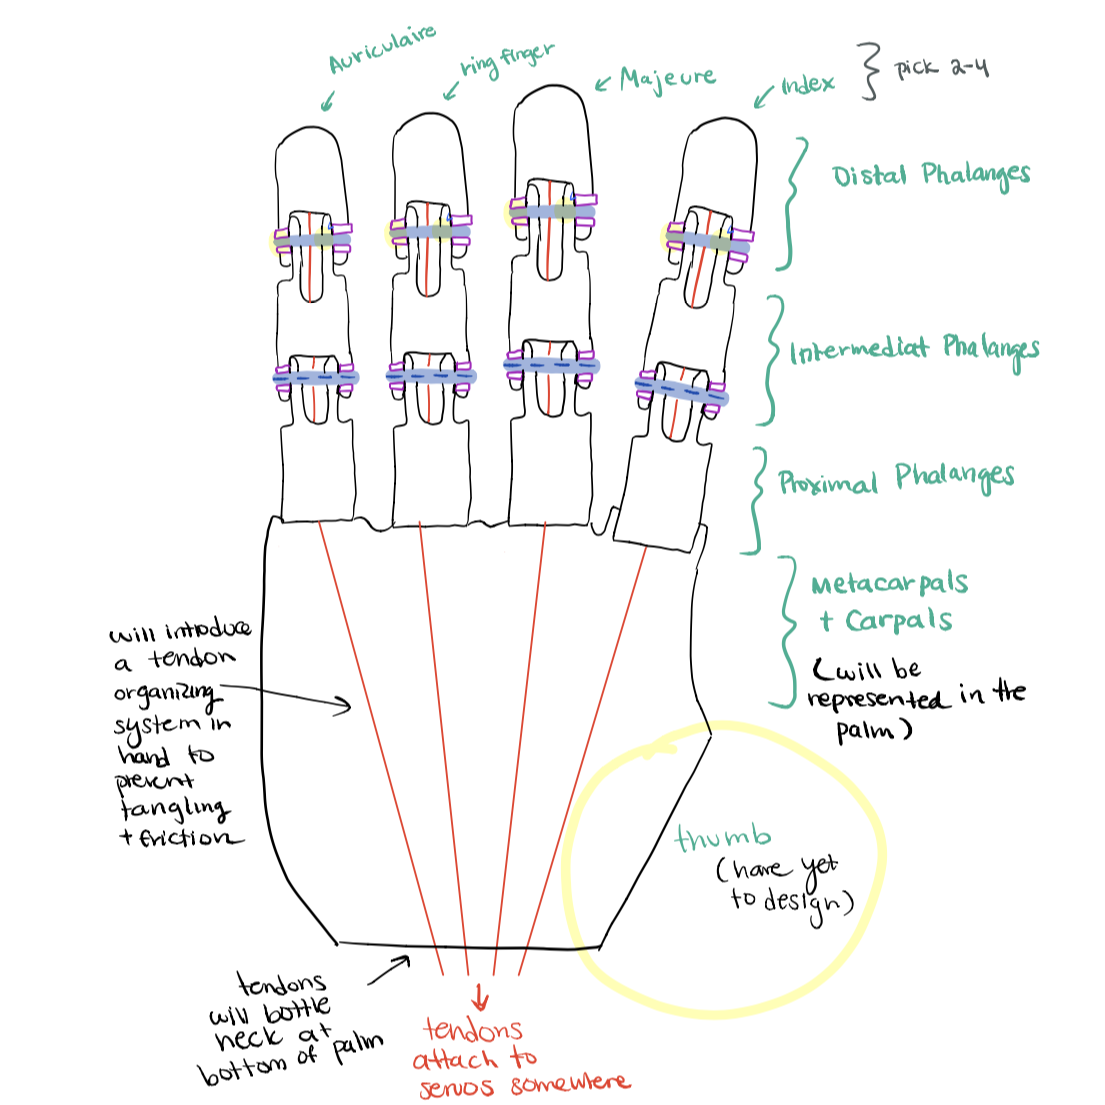 Auriculaire
ring finger
Majeure
Index
pick 2-4
Distal Phalanges
Intermediat Phalanges
Proximal Phalanges
Metacarpals
+ Carpals
(will be
represented in the
palm)
will introduce
a tendon
organizing
system in
hand to
prevent
tangling
+ friction
thumb
(have yet
to design)
tendons
will bottle
neck at
bottom of palm
tendons
attach to
servos somewhere